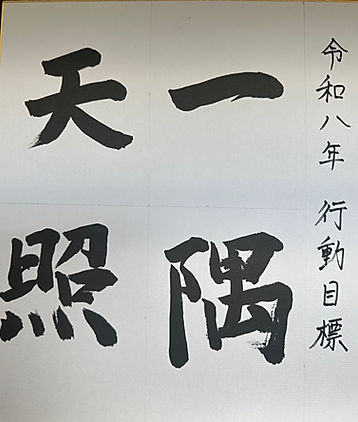 令和八年 行動目標
一隅
天照